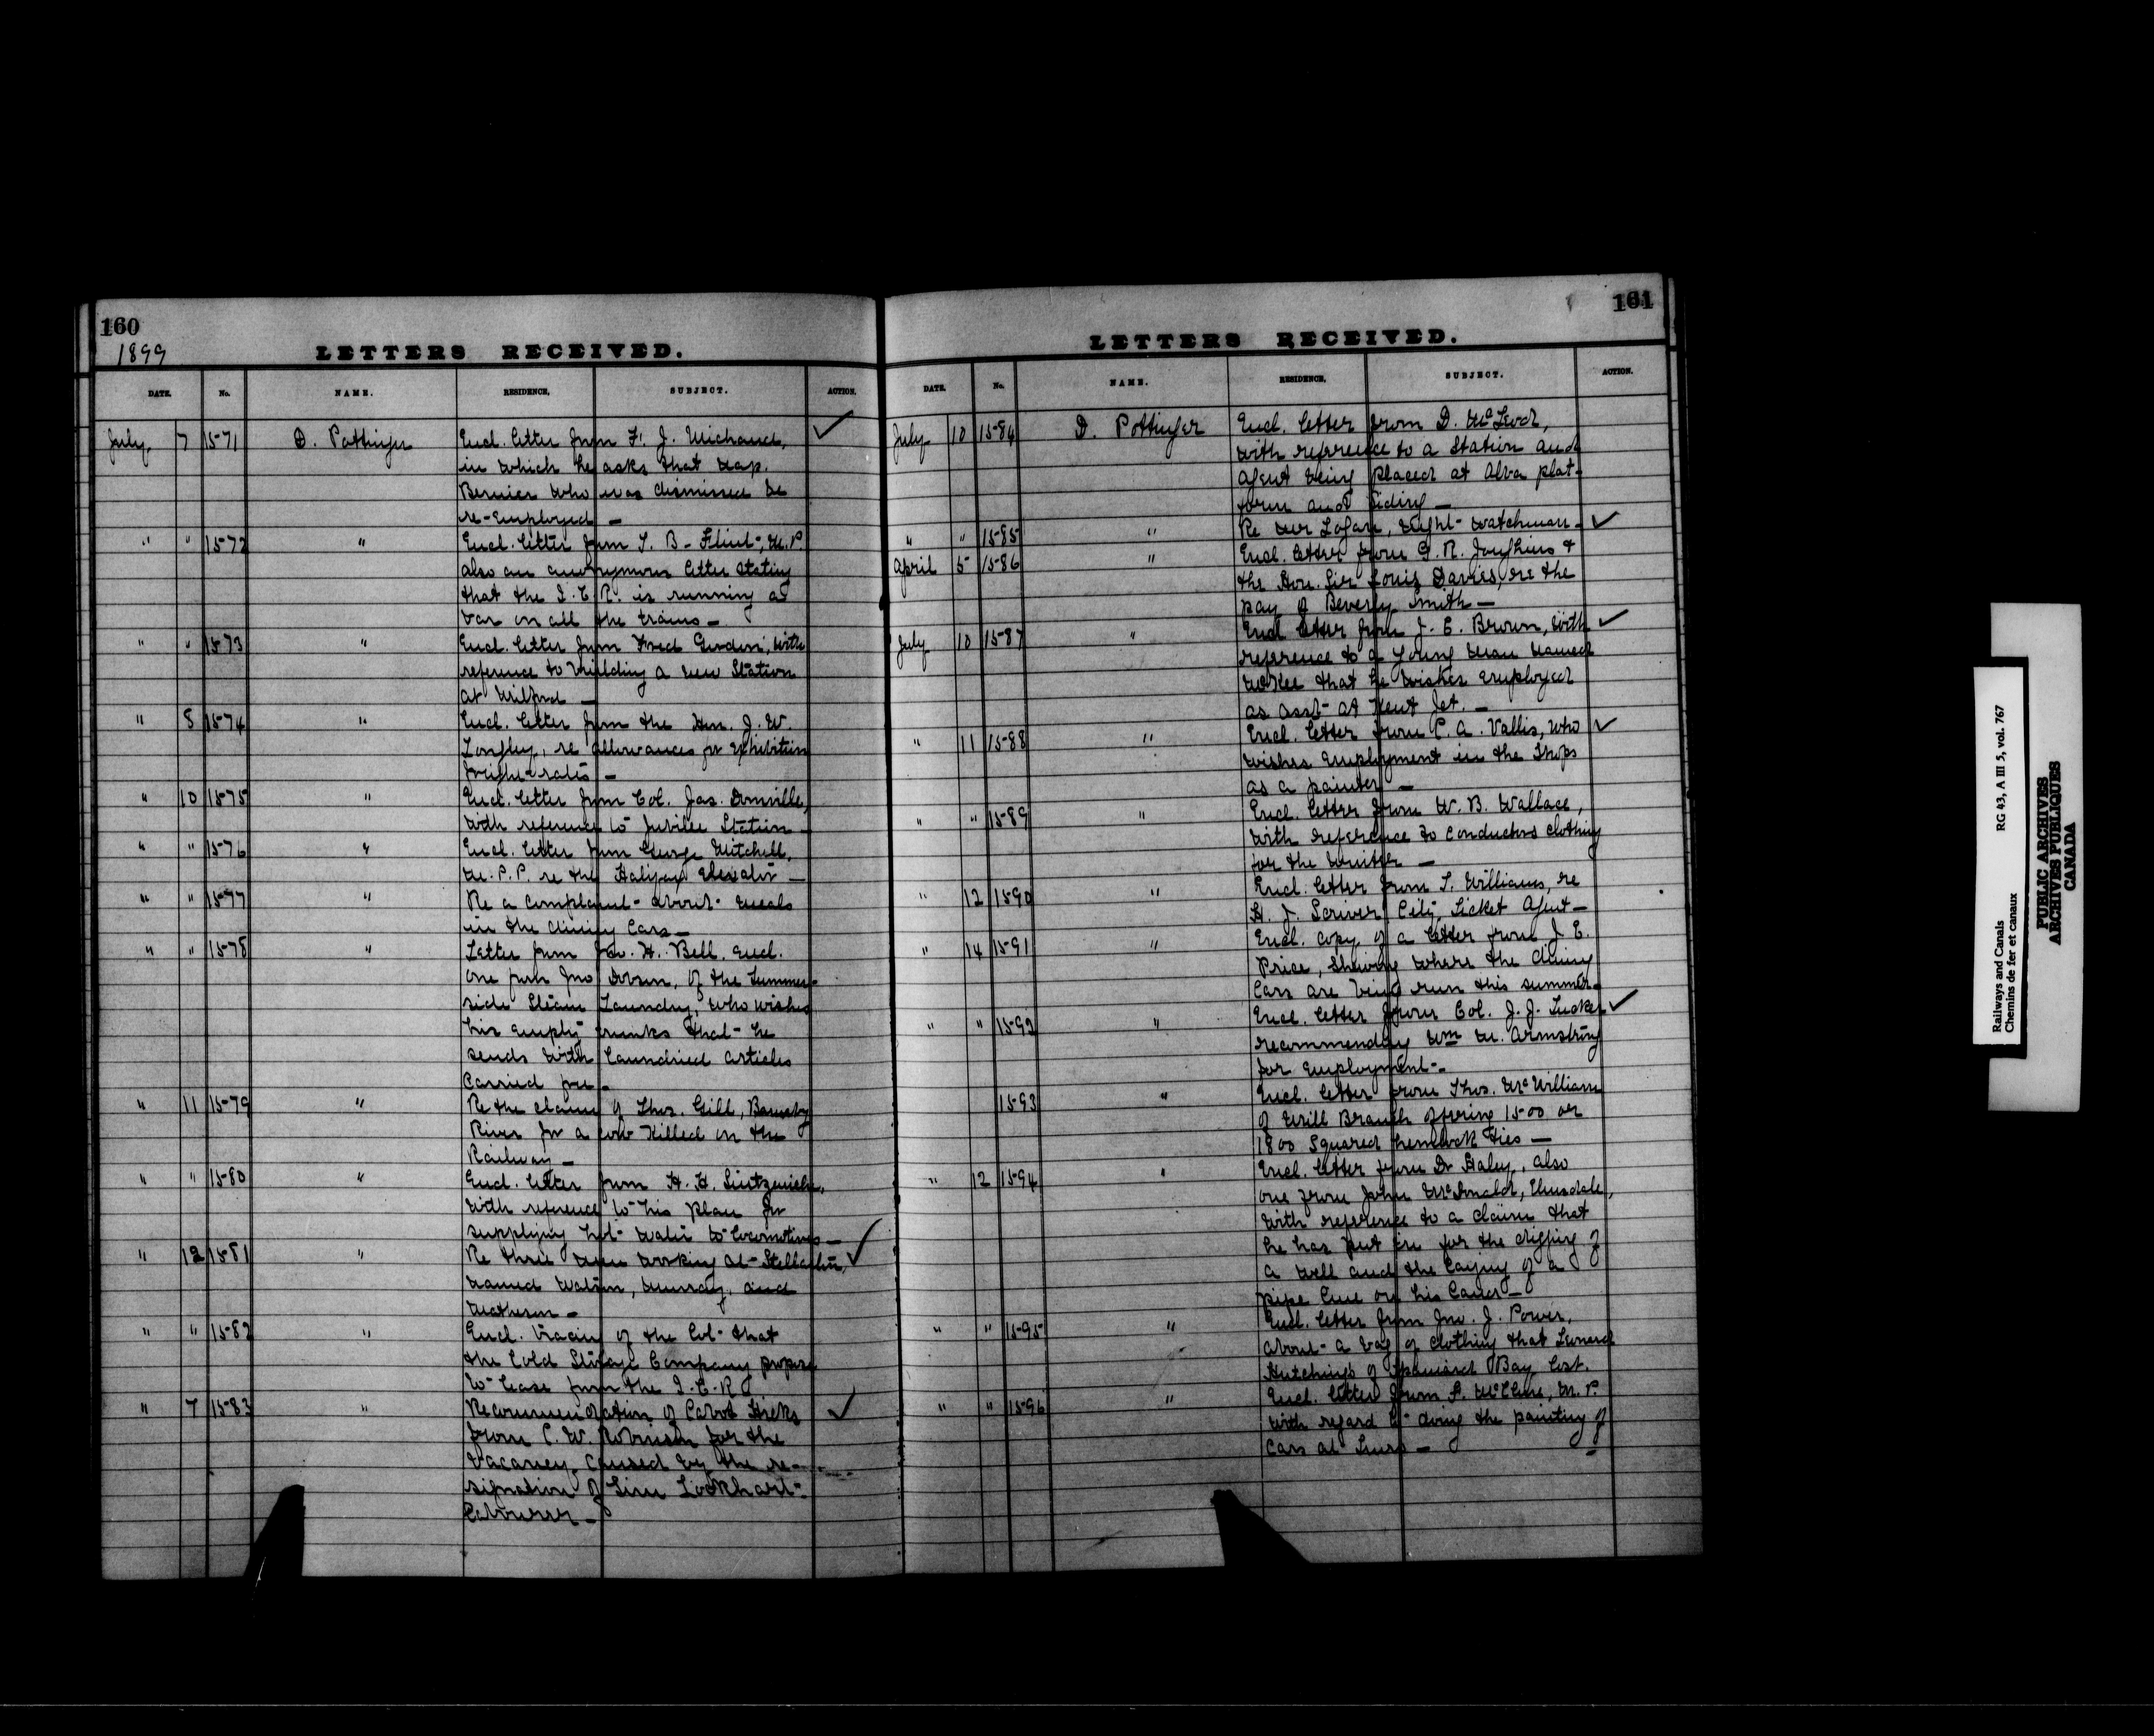 160
1899
LETTERS RECEIVED.
DATE. No. NAME. RESIDENCE, SUBJECT. ACTION.
July. 7 1571 D. Pottinger Encl. letter from F. J. Michaud, ✓
in which he asks that Nap.
Bernier who was dismissed be
re-employed —
" " 1572 " Encl. letter from T. B. Flint, M.P.
also an anonymous letter stating
that the I.C.R. is running a
bar on all the trains —
" " 1573 " Encl. letter from Fred Gordon, with
reference to building a new Station
at Milford —
" 8 1574 " Encl. letter from the Hon. J. W.
Longley, re allowances for exhibition
freight rates —
" 10 1575 " Encl. letter from Col. Jas. Domville,
with reference to Jubilee Station —
" " 1576 " Encl. letter from George Mitchell,
M.P.P. re the Halifax Elevator —
" " 1577 " Re a complaint about meals
in the dining Cars —
" " 1578 " Letter from J. H. Bell, encl.
one from Jno Dobson, of the Summer-
side Steam Laundry, who wishes
his empty trunks that he
sends with laundried articles
Carried free —
" 11 1579 " Re the claim of Thos. Gill, Barnaby
River for a cow killed on the
Railway —
" " 1580 " Encl. letter from H. H.
with reference to his plan for
supplying hot water to locomotives —
" 12 1581 " Re three men working at Stellarton, ✓
named Watson, Murray, and
Matheson —
" " 1582 " Encl. tracing of the lot that
the Cold Storage Company propose
to lease from the I.C.R.
" 7 1583 " Recommendation of Cabot Hicks ✓
from C. W. Robinson for the
vacancy caused by the re-
signation of Tim Lockhart
labourer —
161
LETTERS RECEIVED.
DATE. No. NAME. RESIDENCE, SUBJECT. ACTION.
July 10 1584 D. Pottinger Encl. letter from D. McLeod,
with reference to a station and
agent being placed at Alva plat-
form and siding —
" " 1585 " Re Mr Logan, night watchman — ✓
April 5 1586 " Encl. letter from G. R. Joughins &
the Hon. Sir Louis Davies, re the
pay of Beverly Smith —
July 10 1587 " Encl letter from J. E. Brown, with ✓
reference to a young man named
McKee that he wishes employed
as asst at Kent Jct. —
" 11 1588 " Encl. letter from C. A. Vallis, who ✓
wishes employment in the Shops
as a painter —
" " 1589 " Encl. letter from W. B. Wallace,
with reference to conductors clothing
for the winter —
" 12 1590 " Encl. letter from T. Williams, re
H. J. Scriver City Ticket Agent —
" 14 1591 " Encl. copy of a letter from J. E.
Price, showing where the dining
Cars are being run this summer —
" " 1592 " Encl. letter from Col. J. J. Tucker ✓
recommending Wm M. Armstrong
for employment —
1593 " Encl. letter from Thos. McWilliam
of Mill Branch offering 1500 or
1800 squared hemlock ties —
" 12 1594 " Encl. letter from Dr Haley, also
one from John McDonald, Elmsdale,
with reference to a claim that
he has put in for the digging of
a well and the laying of a
pipe line on his land —
" " 1595 " Encl. letter from Jno. J. Power,
about a bag of clothing that Leonard
Hutchings of Spaniard Bay lost.
" " 1596 " Encl. letter from F. McClure, M.P.
with regard to doing the painting of
Cars at Truro —
Railways and Canals RG 43, A III 5, vol. 767
Chemins de fer et canaux
PUBLIC ARCHIVES
ARCHIVES PUBLIQUES
CANADA